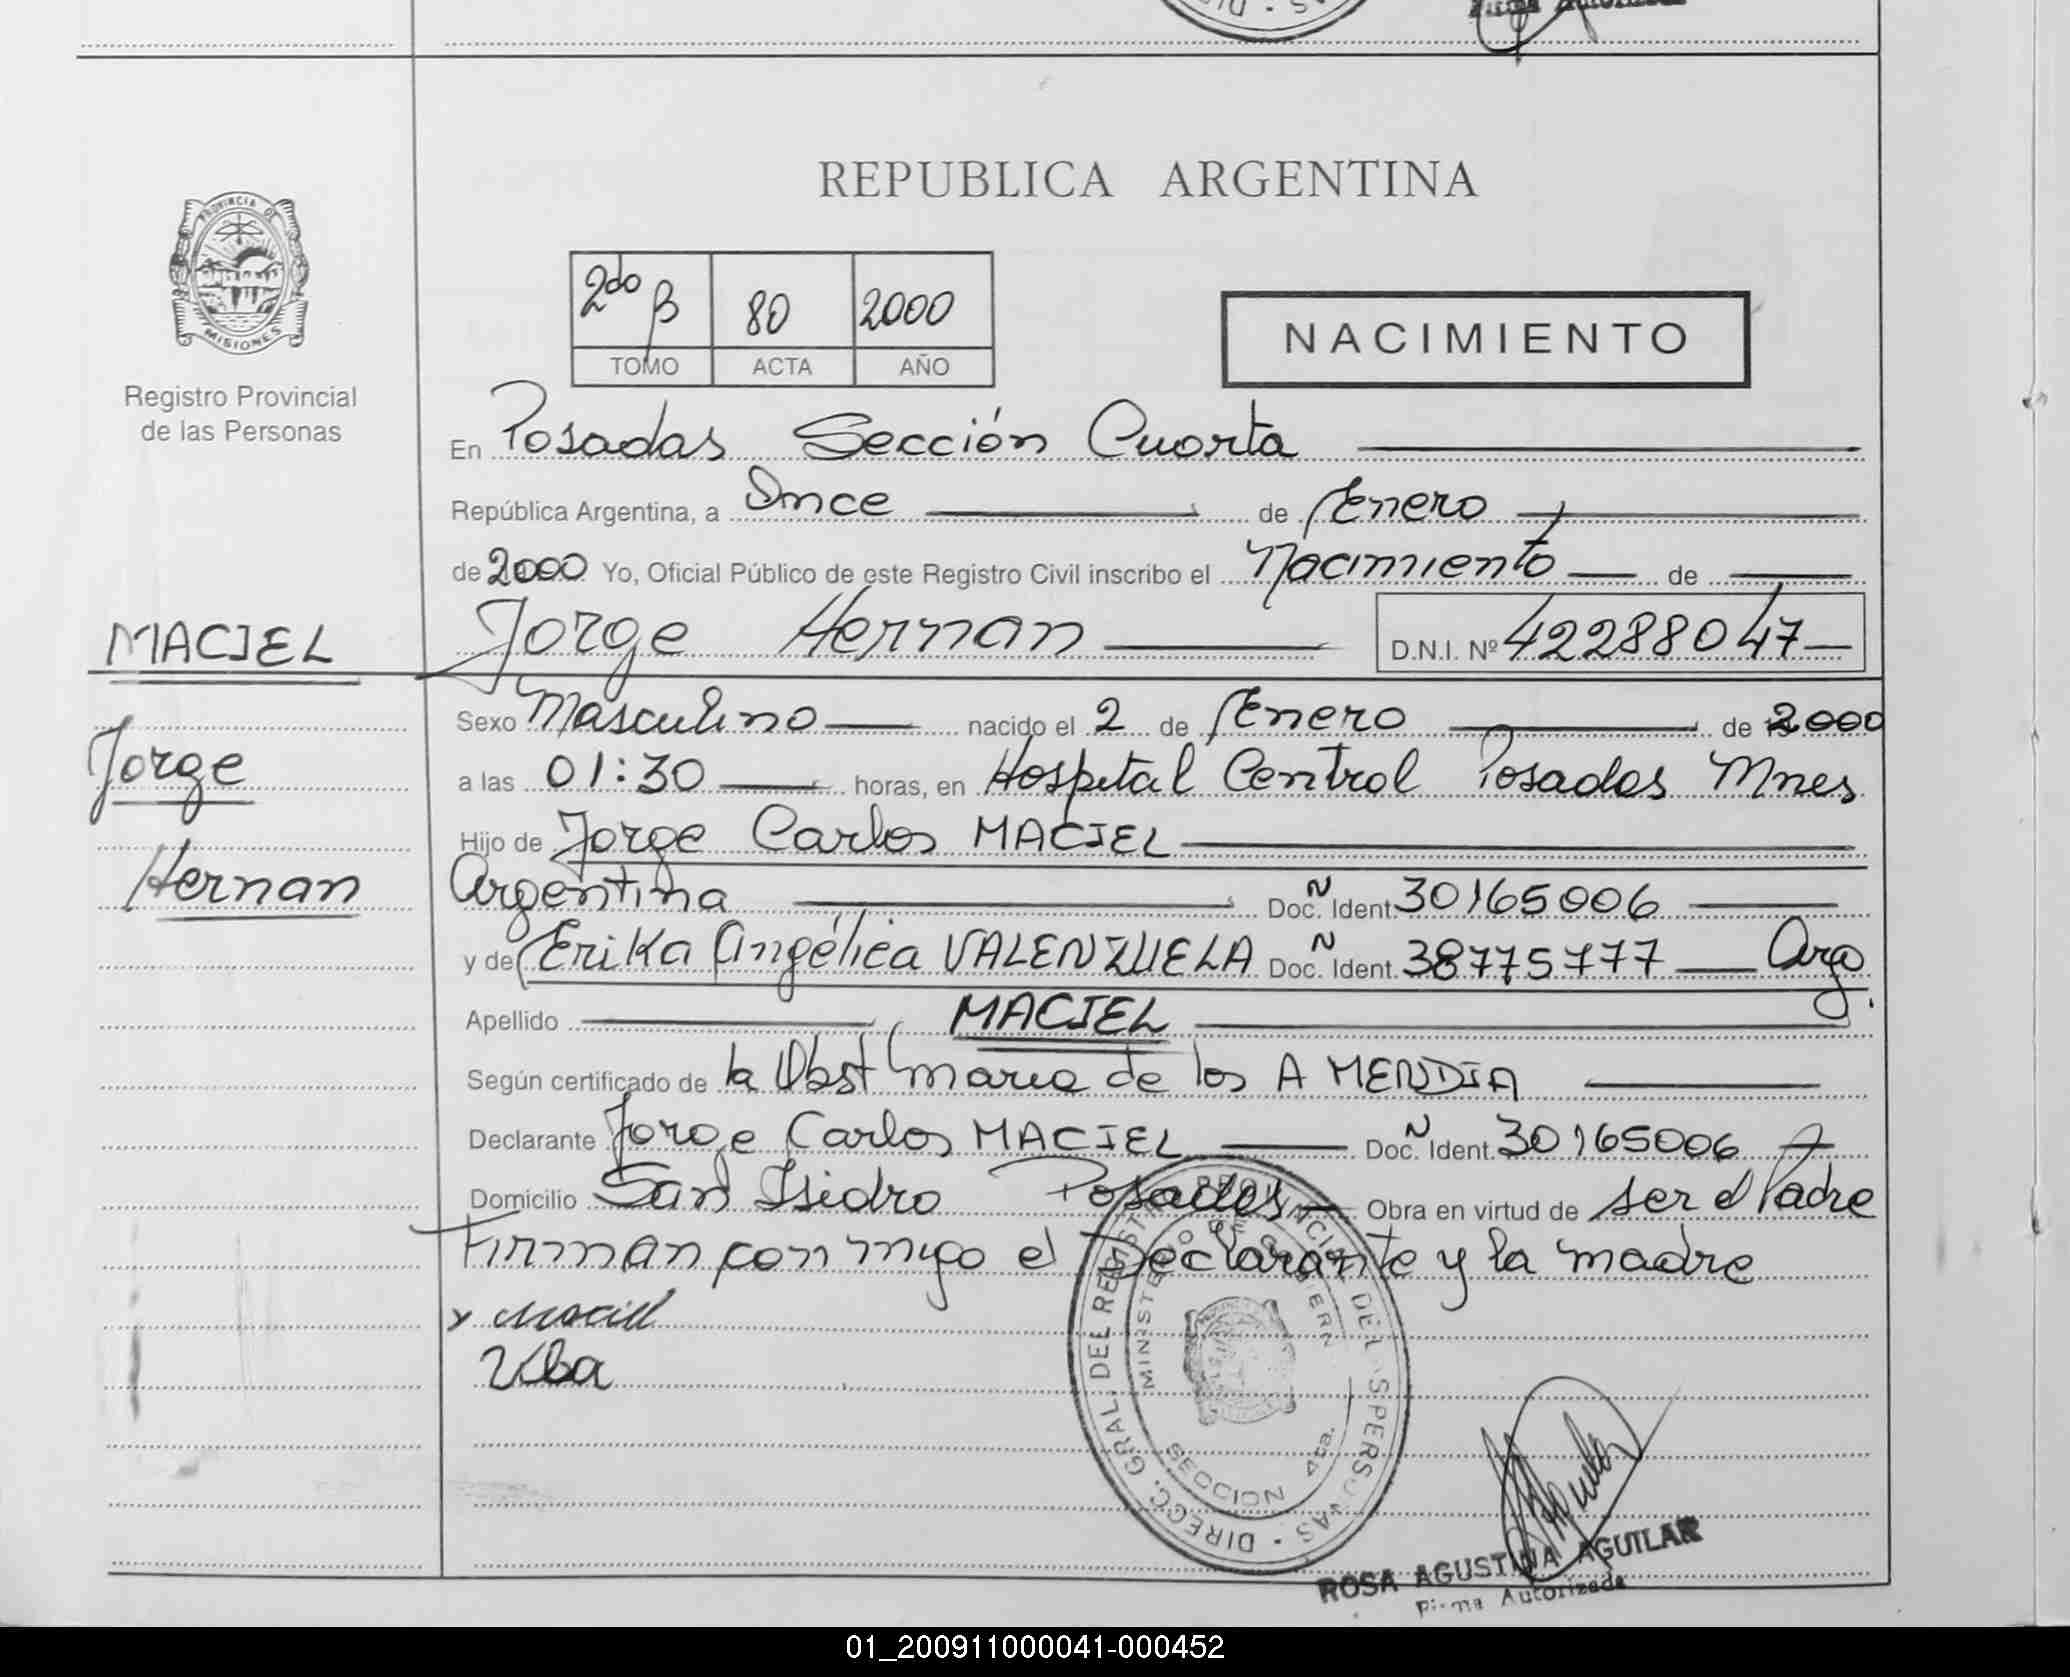 REPUBLICA ARGENTINA
PROVINCIA DE
MISIONES
Registro Provincial
de las Personas
2do B 80 2000
TOMO ACTA AÑO
NACIMIENTO
En Posadas Sección Cuarta
República Argentina, a Once de Enero
de 2000 Yo, Oficial Público de este Registro Civil inscribo el Nacimiento de
MACIEL
Jorge
Hernan
Jorge Hernan D.N.I. Nº 42288047
Sexo Masculino nacido el 2 de Enero de 2000
a las 01:30 horas, en Hospital Central Posadas Mnes
Hijo de Jorge Carlos MACIEL
Argentina Doc. Ñ Ident. 30165006
y de Erika Angélica VALENZUELA Doc. Ñ Ident. 38775777 Arg.
Apellido MACIEL
Según certificado de la Obst Maria de los A MENDIA
Declarante Jorge Carlos MACIEL Doc. Ñ Ident. 30165006
Domicilio San Isidro Posadas Obra en virtud de ser el Padre
Firman con migo el Declarante y la madre
DIRECC. GRAL. DEL REGISTRO PROVINCIAL DE LAS PERSONAS
MINISTERIO DE GOBIERN
SECCION 4ta.
ROSA AGUSTINA AGUILAR
Firma Autorizada
01_200911000041-000452